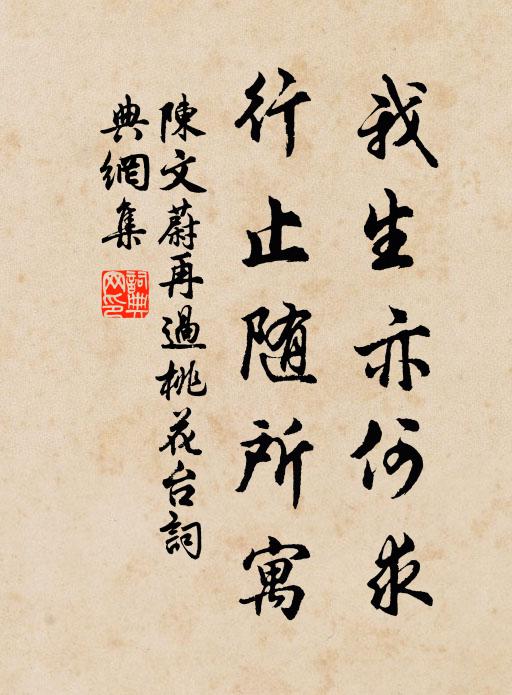 我生亦何求
行止随所寓
陳文蔚再過桃花台詞
典網集
詞典
网印